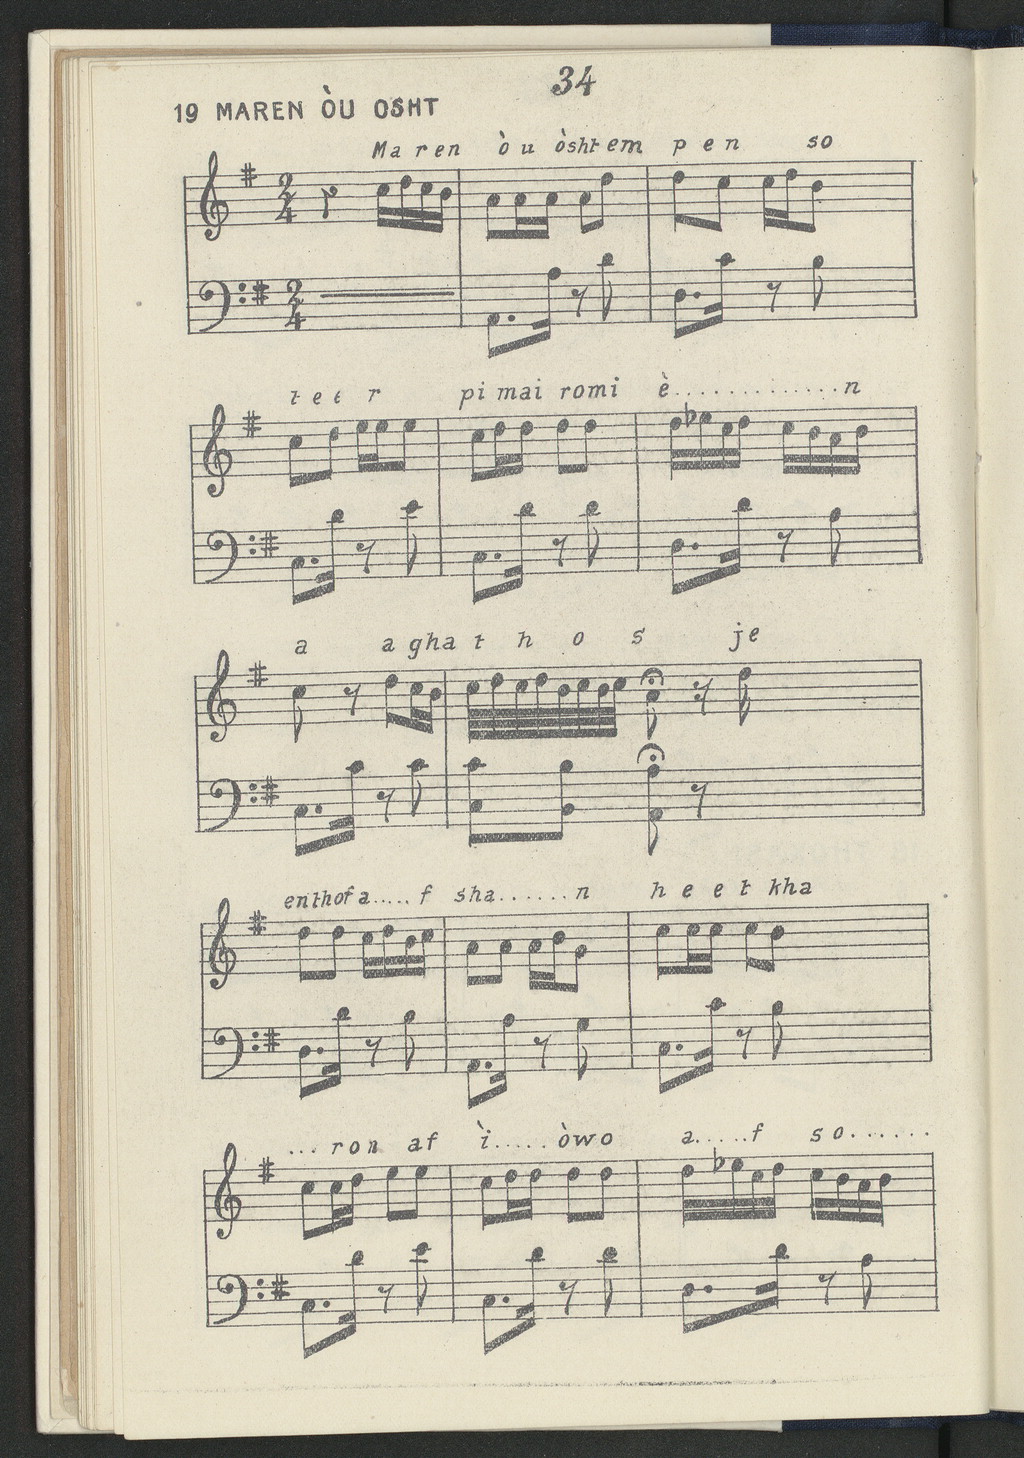 34
19 MAREN ÒU OSHT
Maren òu òshtem pen so
tet r pi mai romi è.............n
a aghat h o s je
enthofa.....f sha.......n heet kha
...ron af ì.....òwo a.....f so.......